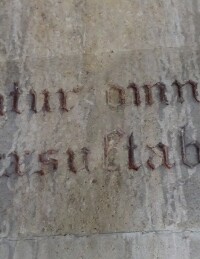 atur omn
exsultab